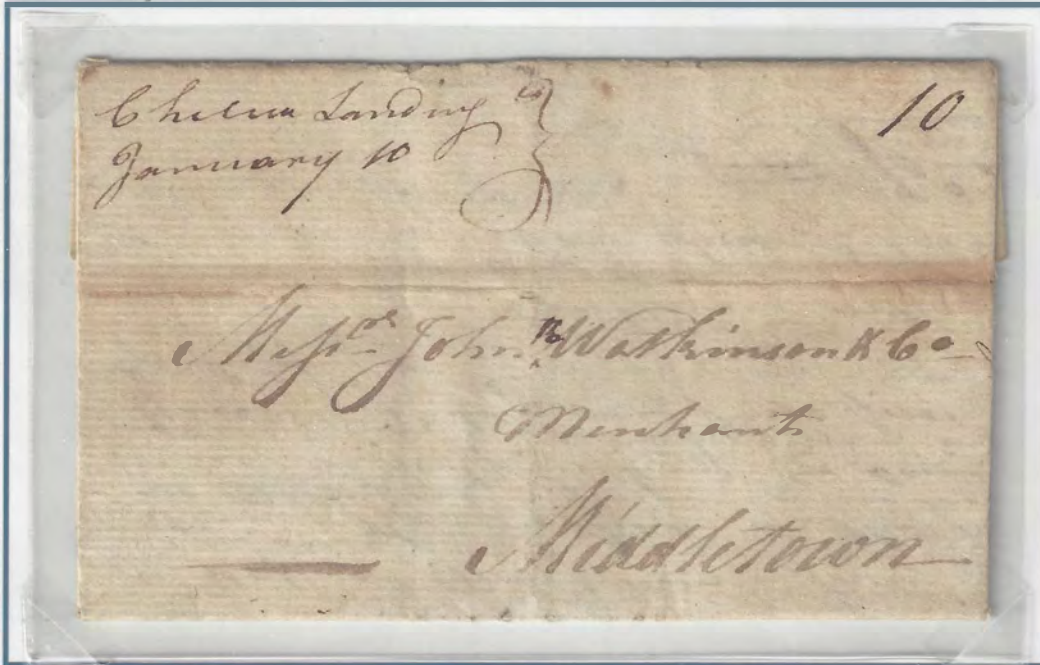 Chelsea Landing
January 10
10
Messrs John Watkinson & Co
Merchants
Middletown